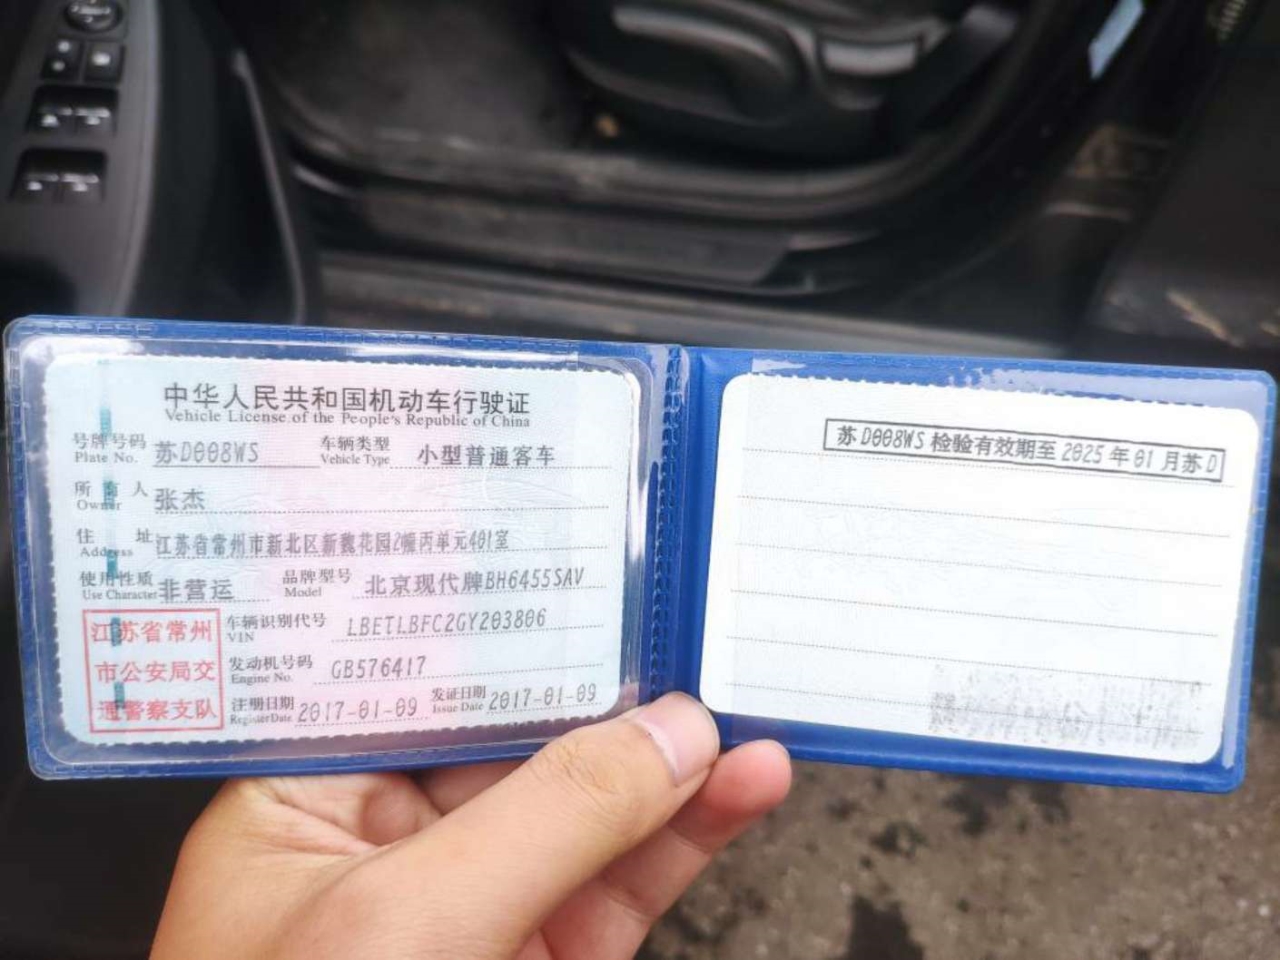 中华人民共和国机动车行驶证
Vehicle License of the People's Republic of China
号牌号码 苏D008WS 车辆类型 小型普通客车
Plate No. Vehicle Type
所有人 张杰
Owner
住址 江苏省常州市新北区新魏花园2幢丙单元401室
Address
使用性质 非营运 品牌型号 北京现代牌BH6455SAV
Use Character Model
江苏省常州 车辆识别代号 LBETLBFC2GY203806
VIN
市公安局交 发动机号码 GB576417
Engine No.
通警察支队 注册日期 2017-01-09 发证日期 2017-01-09
Register Date Issue Date
苏D008WS 检验有效期至 2025 年 01 月 苏D